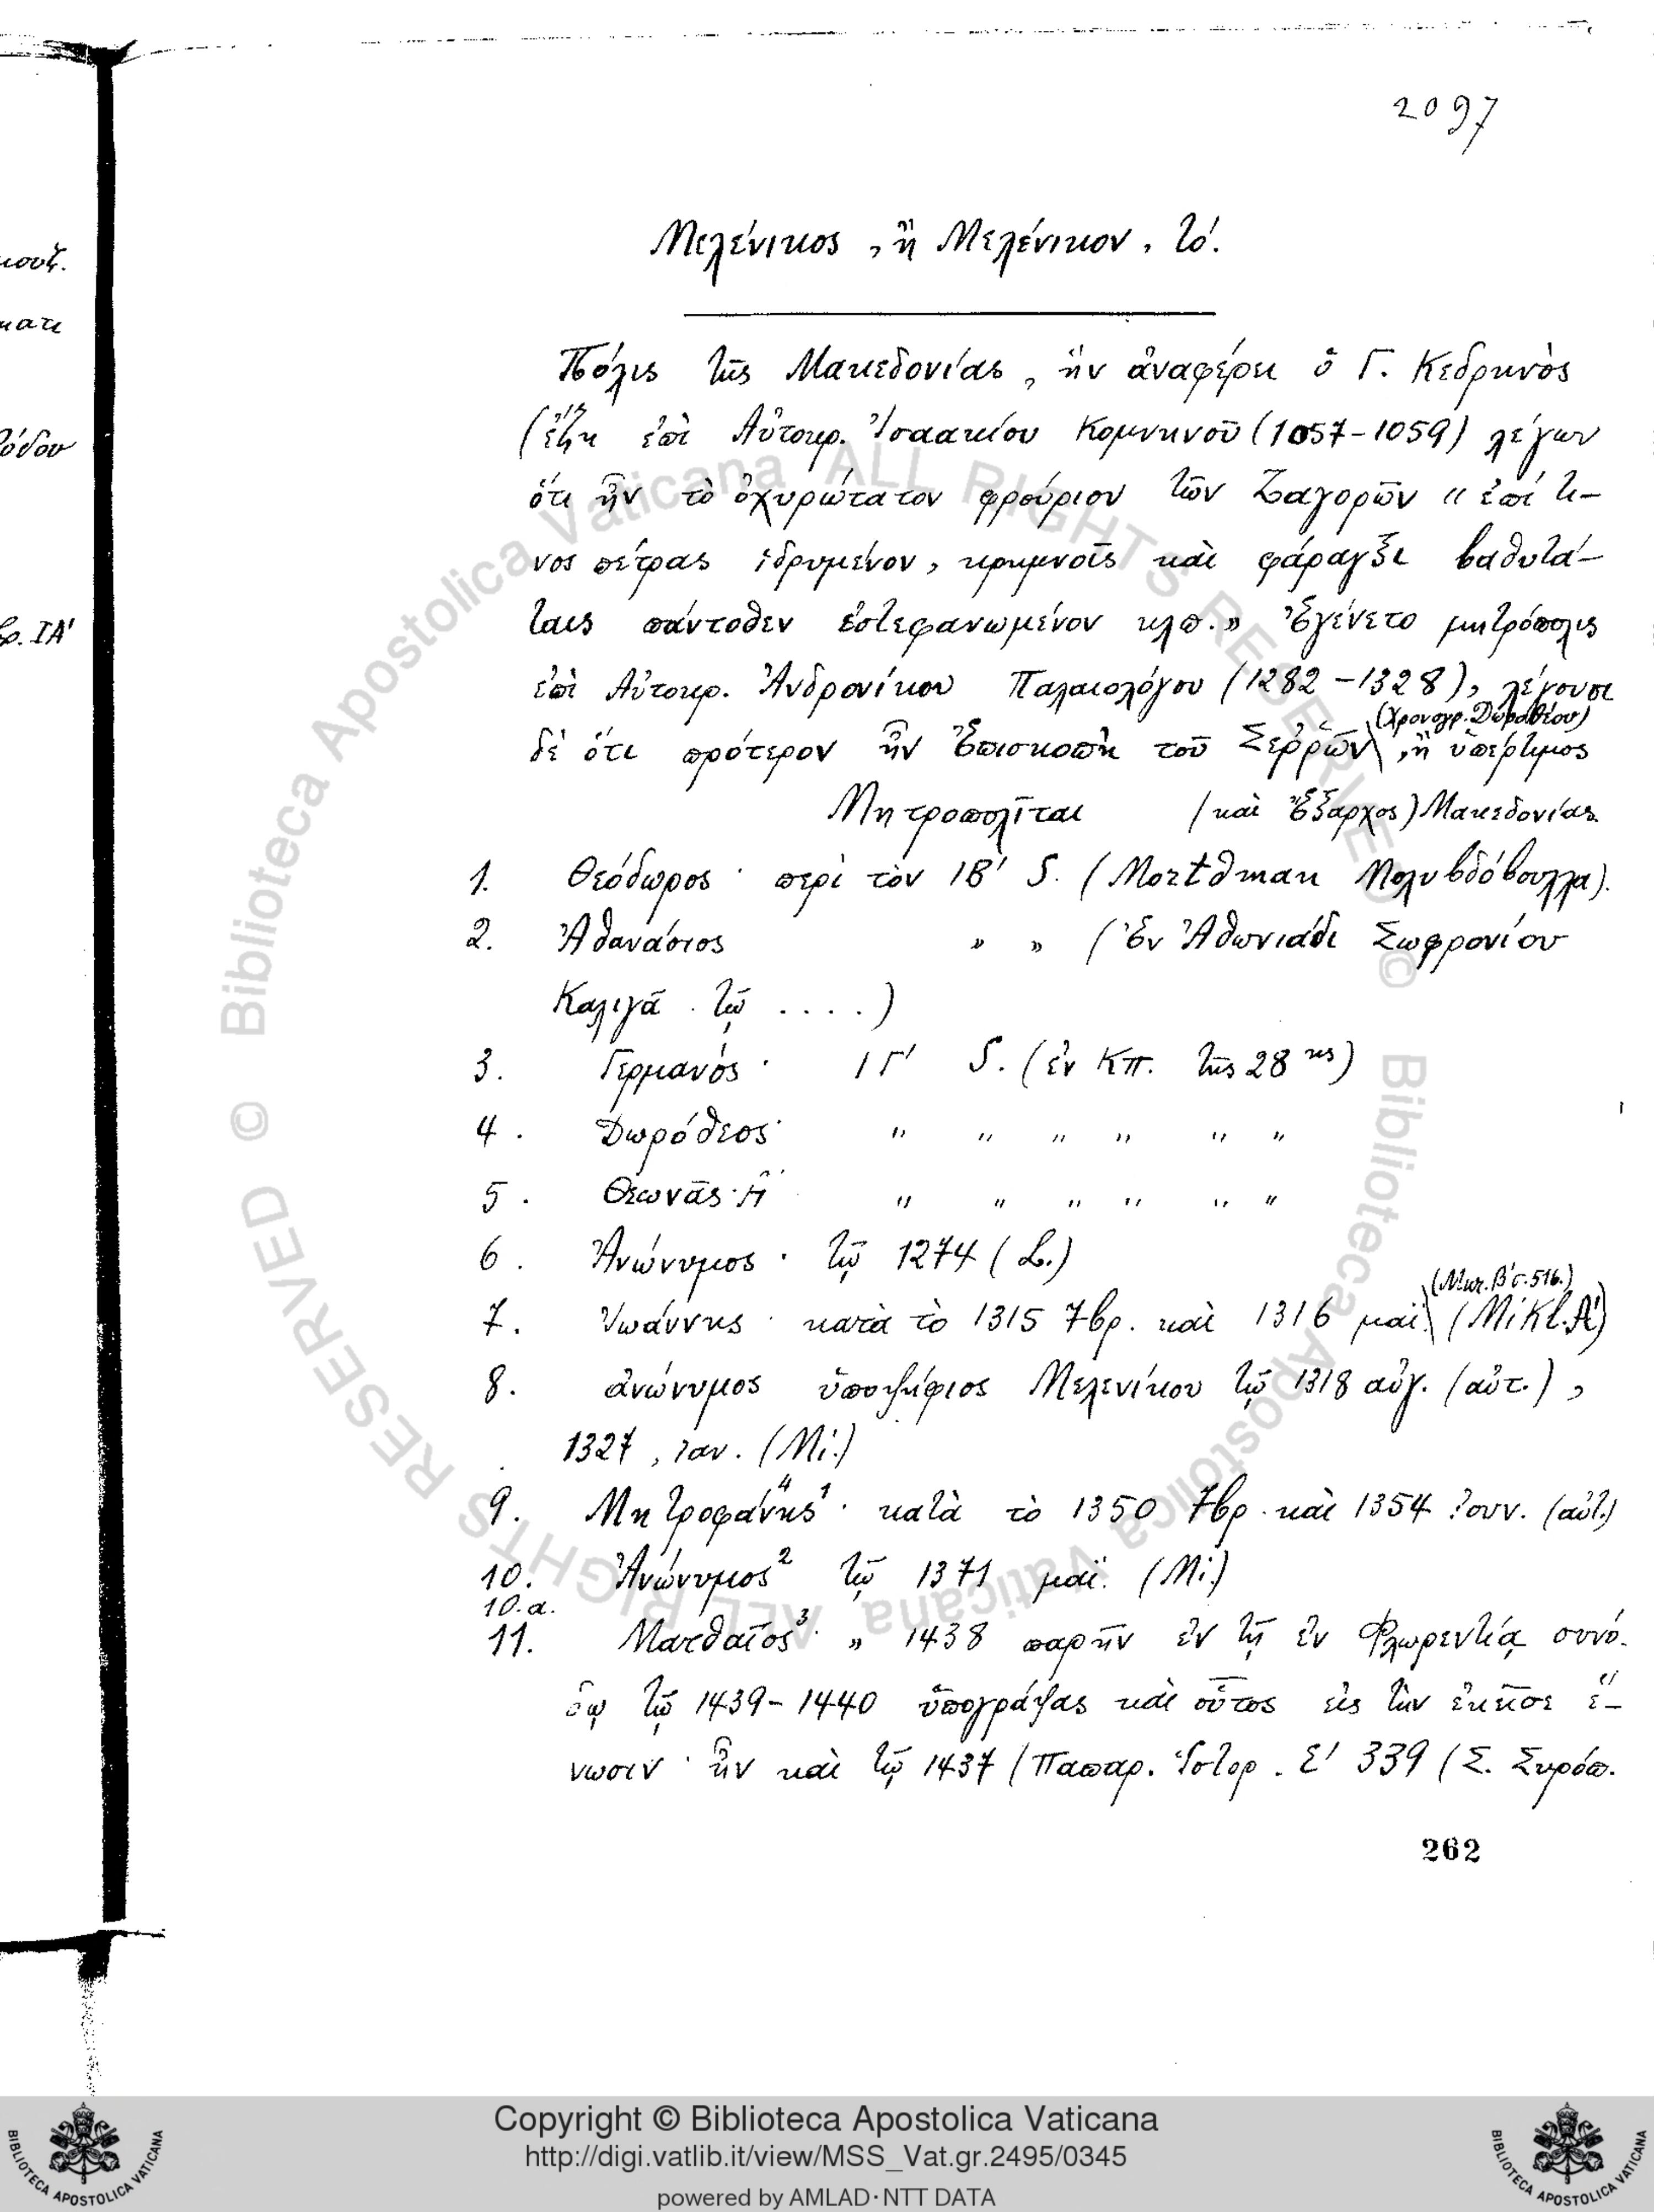 2097
Μελένικος, ἢ Μελένικον, τό.
Πόλις τῆς Μακεδονίας, ἣν ἀναφέρει ὁ Γ. Κεδρηνὸς
(ἔζη ἐπὶ Αὐτοκρ. Ἰσαακίου Κομνηνοῦ (1057-1059) λέγων
ὅτι ἦν τὸ ὀχυρώτατον φρούριον τῶν Ζαγορῶν «ἐπί τι-
νος πέτρας ἱδρυμένον, κρημνοῖς καὶ φάραγξι βαθυτά-
ταις πάντοθεν ἐστεφανωμένον κλπ.» Ἐγένετο μητρόπολις
ἐπὶ Αὐτοκρ. Ἀνδρονίκου Παλαιολόγου (1282-1328), λέγουσι
(Χρονογρ. Δωροθέου)
δὲ ὅτι πρότερον ἦν Ἐπισκοπὴ τοῦ Σεῤῥῶν, ἢ ὑπέρτιμος
Μητροπολῖται (καὶ Ἔξαρχος) Μακεδονίας.
1. Θεόδωρος · περὶ τὸν ΙΒ' S. (Mortdman Μολυβδόβουλλα).
2. Ἀθανάσιος » » (Ἐν Ἀθωνιάδι Σωφρονίου
Καλιγᾶ . τῷ ....)
3. Γερμανός · ΙΓ' S. (ἐν ΚΠ. τῆς 28ης)
4. Δωρόθεος · " " " " " "
5. Θεωνᾶς · " " " " " "
6. Ἀνώνυμος · τῷ 1274 (L.)
(Μικ. Β' σ. 516.)
7. Ἰωάννης · κατὰ τὸ 1315 7βρ. καὶ 1316 μαϊ. (Mikl. A')
8. ἀνώνυμος ὑποψήφιος Μελενίκου τῷ 1318 αὐγ. (αὐτ.),
1327, ιαν. (Mi.)
9. Μητροφάνης¹ · κατὰ τὸ 1350 7βρ. καὶ 1354 Ἰουν. (αὐτ.)
10. Ἀνώνυμος² τῷ 1371 μαϊ. (Mi.)
10.α.
11. Ματθαῖος³ · » 1438 παρῆν ἐν τῇ ἐν Φλωρεντίᾳ συνό-
δῳ τῷ 1439-1440 ὑπογράψας καὶ οὗτος εἰς τὴν ἐκεῖσε ἕ-
νωσιν · ἦν καὶ τῷ 1437 (Παπαρ. Ἱστορ. Ε' 339 (Σ. Συρόπ.
262
κουζ.
ρ. ΙΑ'
© Biblioteca Apostolica Vaticana ALL RIGHTS RESERVED
© Biblioteca Apostolica Vaticana ALL RIGHTS RESERVED
Copyright © Biblioteca Apostolica Vaticana
http://digi.vatlib.it/view/MSS_Vat.gr.2495/0345
powered by AMLAD·NTT DATA
BIBLIOTECA APOSTOLICA VATICANA
BIBLIOTECA APOSTOLICA VATICANA